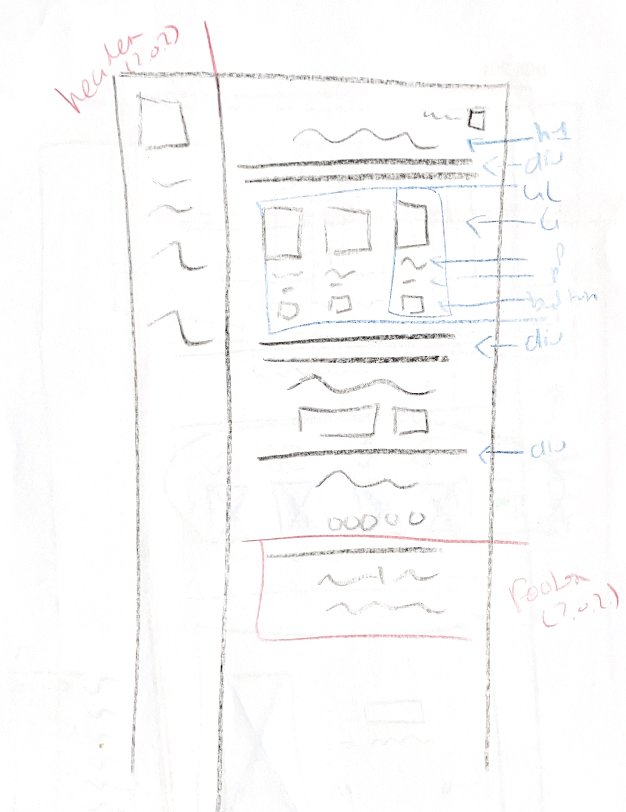 header
(2.0.2)
h1
div
ul
li
p
p
button
div
div
footer
(2.0.2.)